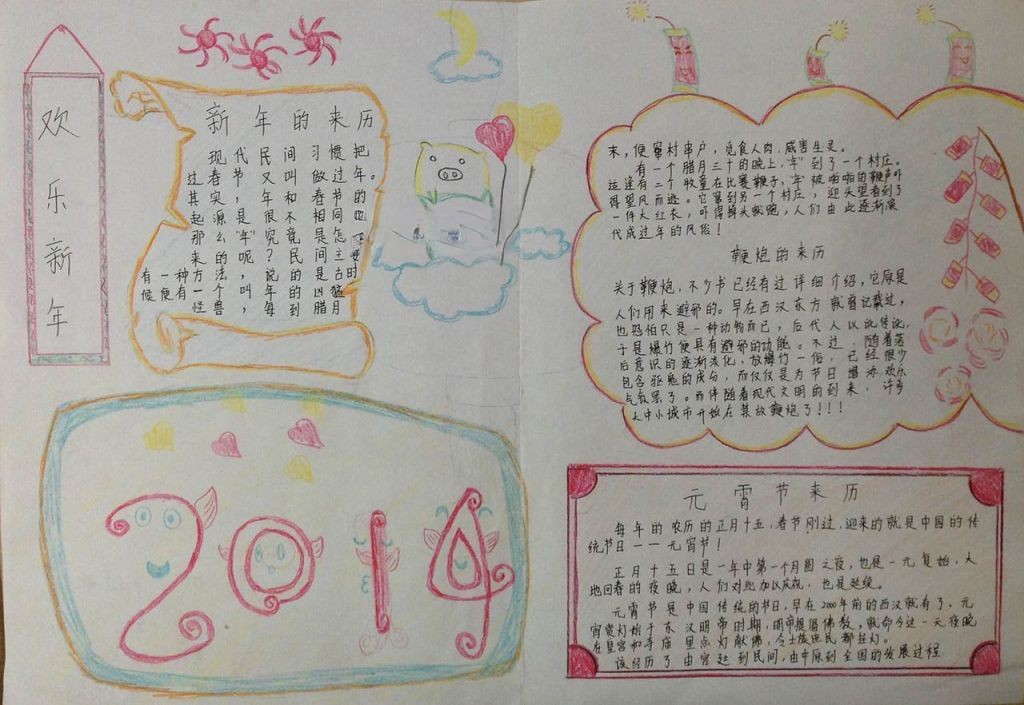 欢乐新年
新年的来历
现代民间习惯把
过春节又叫做过年。
其实，年和春节的
起源是很不相同的
那么"年"究竟是怎么
来的呢？民间主要
有一种方法，说的是古时
候便有一个叫年的凶猛
怪兽，每到腊月
末，便窜村串户，觅食人肉，威害生灵。
有一个腊月三十的晚上，"年"到了一个村庄。
运逢有二个牧童在比赛鞭子，"年"被啪啪的鞭声吓
得望风而逃。它窜到另一个村庄，迎头望看到了
一件大红衣，吓得掉头就跑，人们由此逐渐演
代成过年的风俗！
鞭炮的来历
关于鞭炮，不少书已经有过详细介绍，它原是
人们用来避邪的。早在西汉东方就曾记载过，
也恐怕只是一种动物而已，后代人以此传说，
于是爆竹便具有避邪的功能。不过，随着落
后意识的逐渐淡化，放爆竹一俗，已经很少
包含驱鬼的成分，而仅仅是为节日增添欢乐
气氛罢了。而伴随着现代文明的到来，许多
大中小城市开始在禁放鞭炮了！！！
2014
元霄节来历
每年的农历的正月十五，春节刚过，迎来的就是中国的传
统节日一一元宵节！
正月十五日是一年中第一个月圆之夜，也是一元复始，大
地回春的夜晚，人们对此加以庆祝，也是延续。
元霄节是中国传统的节日，早在2000年前的西汉就有了，元
宵赏灯始于东汉明帝时期，明帝提倡佛教，就命令这一天夜晚
在皇宫和寺庙里点灯献佛，令士族庶民都挂灯。
该经历了由宫廷到民间，由中原到全国的发展过程